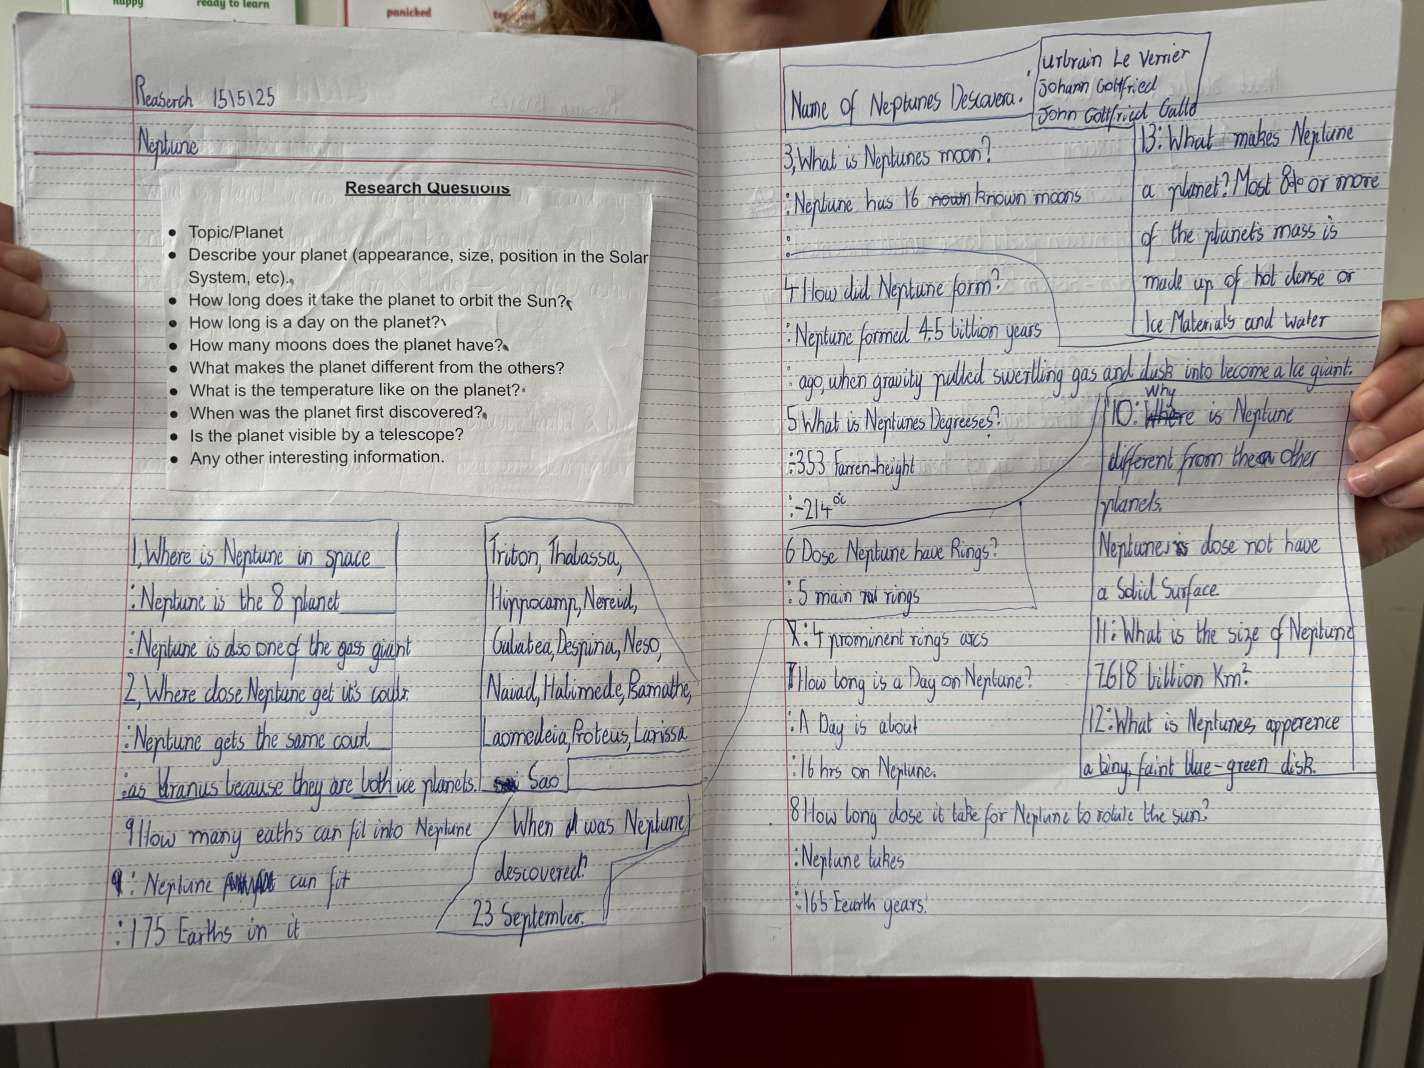 happy
ready to learn
panicked
Reaserch 15/5/25
Neptune
Research Questions
Topic/Planet
Describe your planet (appearance, size, position in the Solar
System, etc).
How long does it take the planet to orbit the Sun?
How long is a day on the planet?
How many moons does the planet have?
What makes the planet different from the others?
What is the temperature like on the planet?
When was the planet first discovered?
Is the planet visible by a telescope?
Any other interesting information.
1, Where is Neptune in space
: Neptune is the 8 planet
: Neptune is also one of the gass giant
2, Where dose Neptune get it's coulr.
: Neptune gets the same courl
: as Uranus because they are both ice planets.
9 How many eaths can fit into Neptune
: Neptune can fit
: 175 Earths in it
Triton, Thalassa,
Hippocamp, Nereid,
Galatea, Despina, Neso,
Naiad, Halimede, Psamathe,
Laomedeia, Proteus, Larissa
Sao
When was Neptune
descovered?
23 September.
Name of Neptunes Descovera.
urbrain Le Verrier
Johann Gottfried
John Gottfried Galld
3, What is Neptunes moon?
: Neptune has 16 nown known moons
:
4 How did Neptune form?
: Neptune formed 4.5 billion years
: ago, when gravity pulled swertling gas and dusk into become a Ice giant.
5 What is Neptunes Degreeses?
:-353 Farren-height
:-214°c
6 Dose Neptune have Rings?
: 5 main rings
: 4 prominent rings arcs
7 How long is a Day on Neptune?
: A Day is about
: 16 hrs on Neptune.
8 How long dose it take for Neptune to rotate the sun?
: Neptune takes
: 165 Eearth years.
13: What makes Neptune
a planet? Most 80% or more
of the planet's mass is
made up of hot dense or
Ice Materials and water
Why
10: Where is Neptune
different from the other
planets.
Neptune is dose not have
a Solid Surface
11: What is the size of Neptune
7.618 billion Km²
12: What is Neptunes apperence
a tiny, faint blue-green disk.